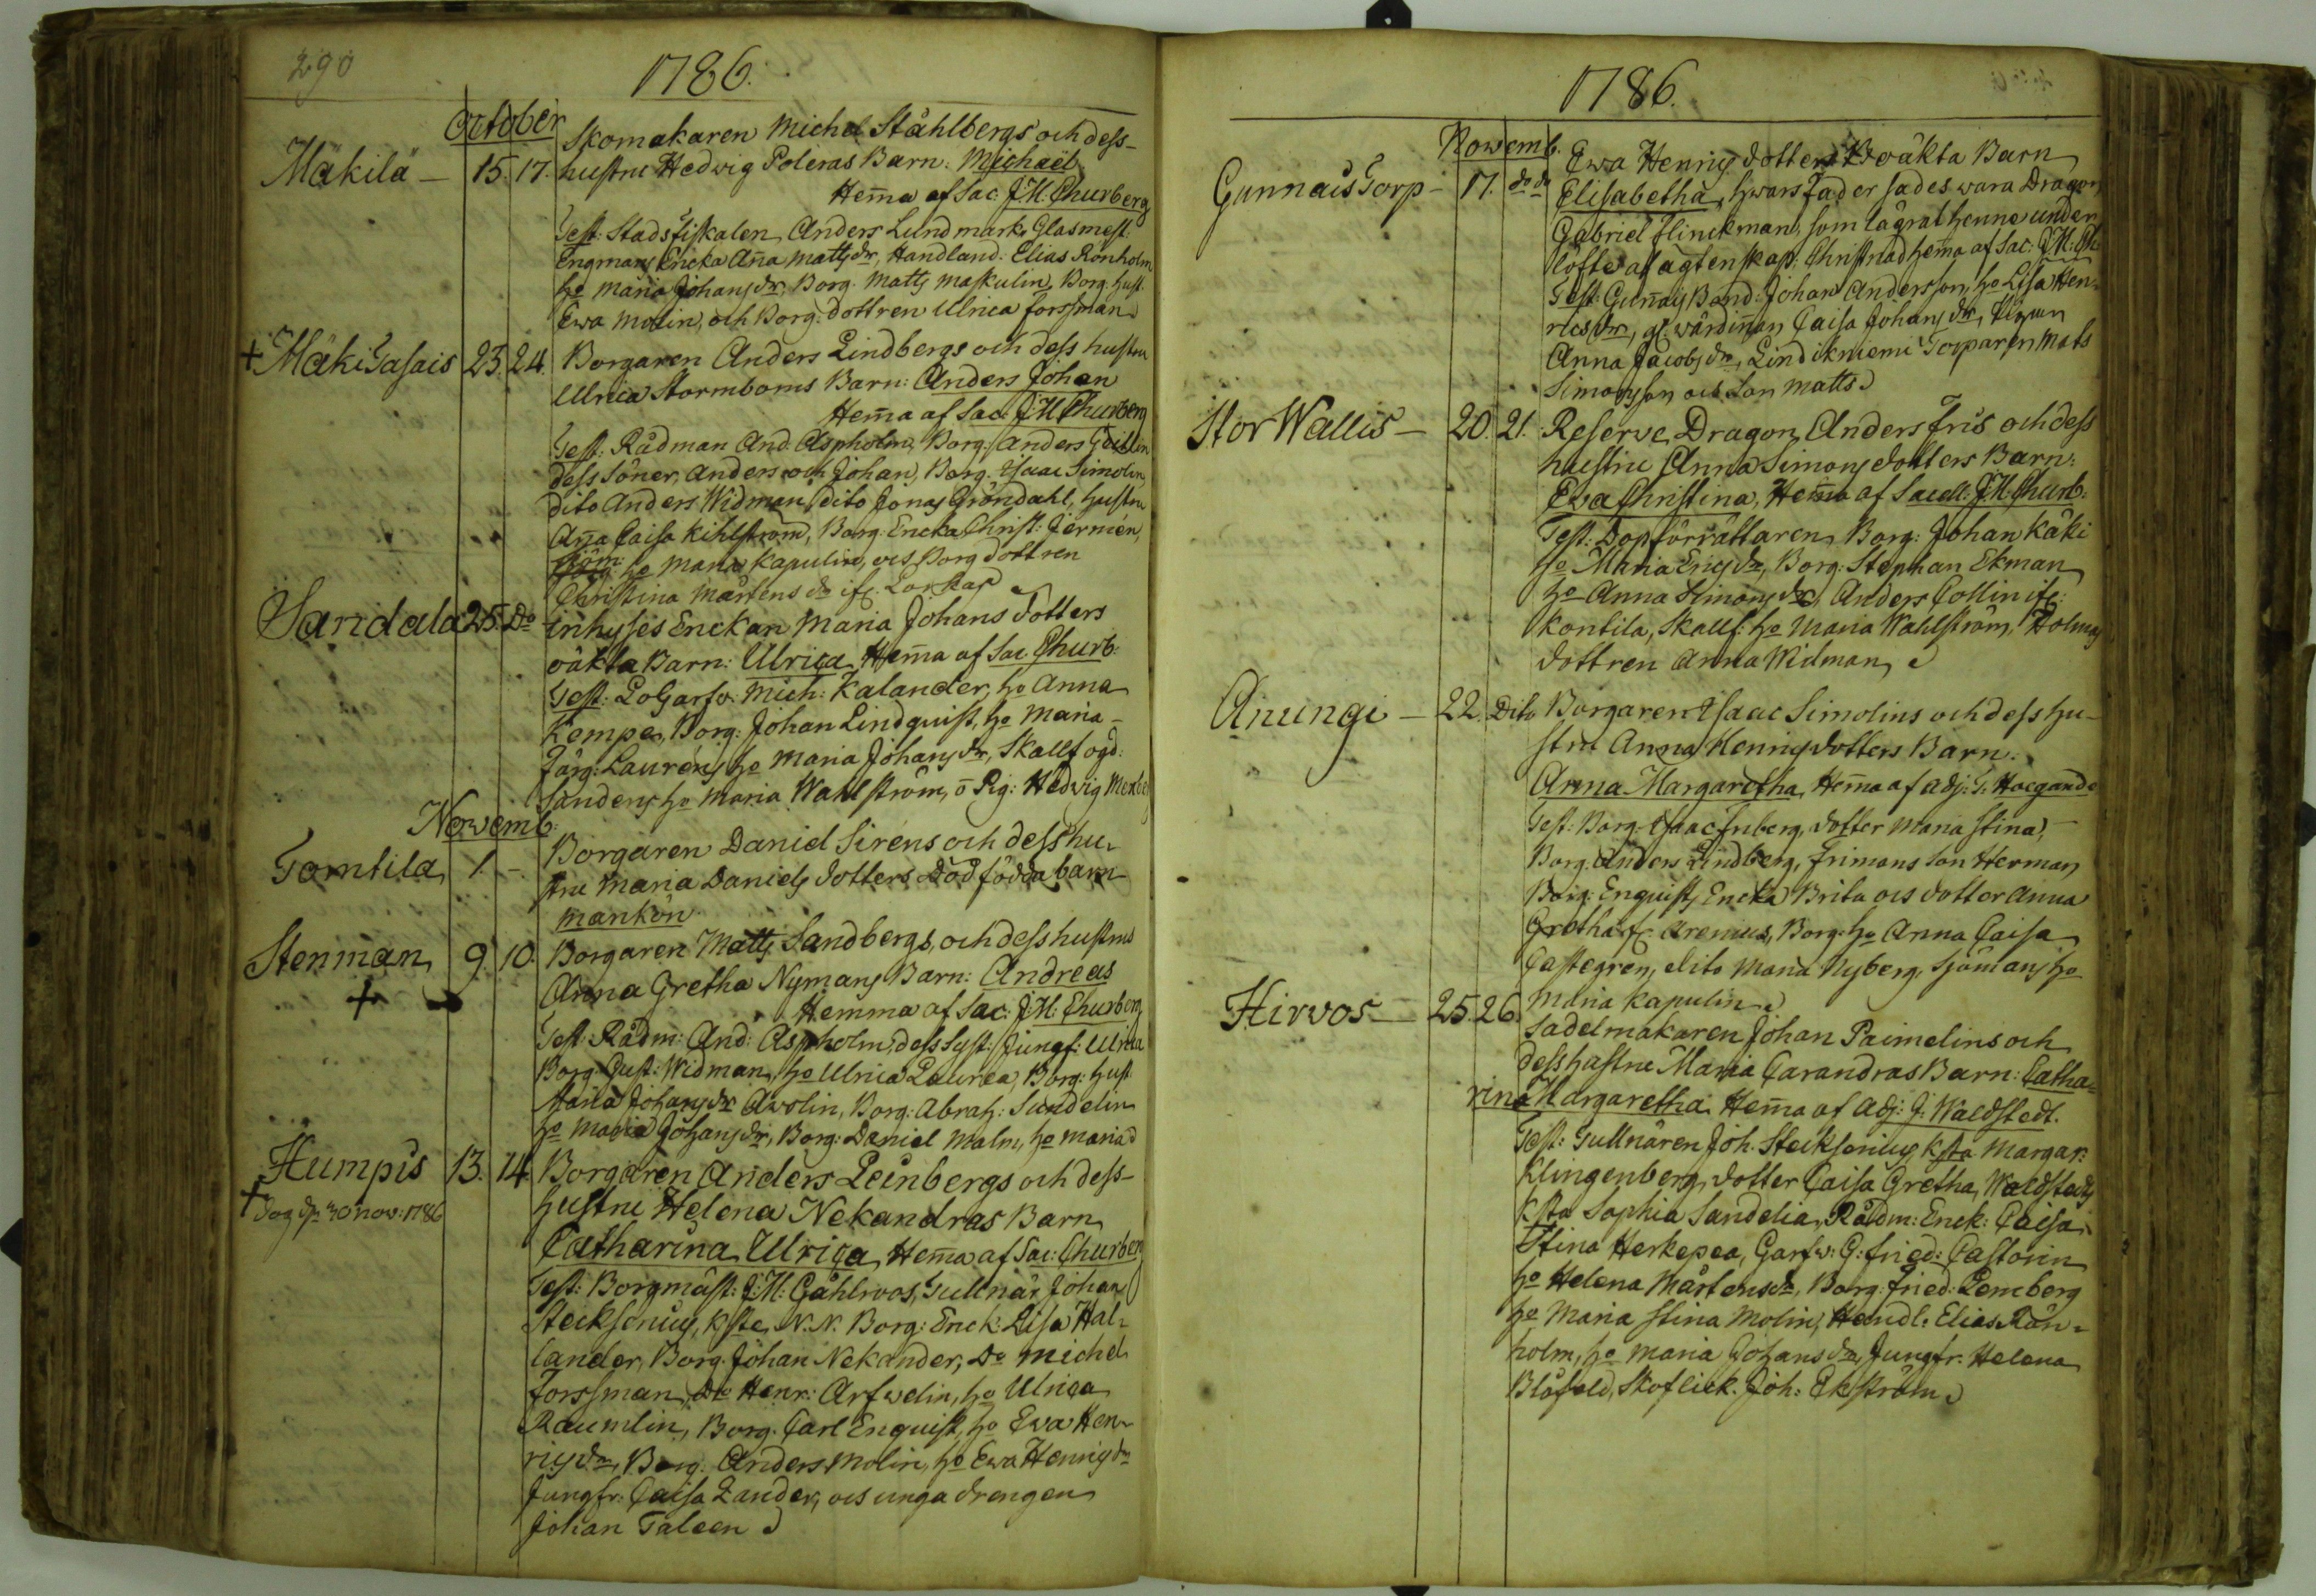 290
1786.
October
Skomakaren Michel Ståhlbergs och dess
Mäkilä — 15. 17. hustru Hedwig Poleras Barn: Michael
Hem̄a af Sac: J.H. Churberg
Test: Stadsfiskalen Anders Lundmark, Glasmest:
Engmans Encka An̄a Matts dr, Handland: Elias Rönholm
ho Maria Johans dr, Borg. Matts Maskulin, Borg: hust:
Ewa Molin, och Borg: dottren Ulrica Forssman
+ Mäki Gasais 23. 24. Borgaren Anders Lindbergs och dess hustru
Ulrica Stormboms Barn: Anders Johan
Hem̄a af Sac: J.H. Churberg
Test: Rådman And. Aspholm, Borg: Anders
dess Söner, Anders och Johan, Borg. Isaac Simolin,
dito Anders Widman, dito Jonas Gröndahl, hustru
An̄a Caisa Kihlström, Borg: Encka Christ: Jermén,
ho Maria Kapulin, ocs Borg dottren
Christina Mårtens dr
Sandala 25. Do Inhyses Enckan Maria Johans dotters
oäkta Barn: Ulrica Hem̄a af Sac Churb:
Test: LoGarfw: Mich: Kalander, ho Anna
Kempe, Borg: Johan Lindquist, ho Maria
Färg: Lauréns ho Maria Johans dr, Skallfogd:
Sandens ho Maria Wahlström, o Pig: Hedwig
Novemb:
Tomtila 1. -. Borgaren Daniel Sirens och dess hu-
stru Maria Daniels dotters Dödfödda barn
mankön
Stenman 9. 10. Borgaren Matts Sandbergs, och dess hustrus
+ Anna Gretha Nymans Barn: Andreas
Hemma af Sac: J.H. Churberg
Test: Rådm: And: Aspholm, dess Syst: Jungf: Ulrica
Borg: Gust: Widman, ho Ulrica Laurea, Borg: hust
Maria Johans dr Awolin, Borg: Abrah: Sundelin
ho Maria Johans dr, Borg: Daniel Malm, ho Maria
Humpis 13. 14. Borgaren Anders Leinbergs och dess
+ hustru Helena Nekandras Barn
dog d: 30 nov: 1786
Catharina Ulrica, Hem̄a af Sac: Churberg
Test: Borgmäst: J:H: Gåhlroos, Tullnär Johan
Stecksenius, Kste N.N. Borg: Enck: Lisa Hal-
lander, Borg. Johan Nekander, Do Michel
Forssman, Do Henr: Arfwelin, ho Ulrica
Raumlin, Borg. Carl Enquist, ho Ewa Hen-
rics dr, Borg. Anders Molin, ho Ewa Henrics dr
Jungfr: Caisa Zander, ocs unga drengen
Johan Taleen
1786.
Novemb.
Ewa Henrics dotters oäkta Barn
Gunnais Torp — 17. do do Elisabetha, hwars Fader sades wara Dragon
Gabriel Flinckman, som lägrat henne under
löfte af ägtenskap; Christnad hem̄a af Sac: J.H. Ch:
Test: Gun̄ais Bond: Johan Andersson, ho Lisa Hen-
rics dr, gl: wärdin̄an Caisa Johans dr, Pigan
Anna Jacobs dr, Lindikniemi Torparen Mats
Simonsson ocs Son Matts
Stor Wallis — 20. 21. Reserve Dragon Anders Fris och dess
hustru Anna Simons dotters Barn:
Ewa Christina, Hem̄a af Sacell: J.H. Churb:
Test: Dopförrättaren, Borg: Johan Käki
ho Maria Erics dr, Borg: Stephan Ekman
ho Anna Simons dr, Anders Collin ifr:
Kontila, Skallf: ho Maria Wahlström, Holmas
dottren Anna Widman
Anungi — 22. Dito Borgaren Isaac Simolins och dess hu-
stru Anna Henrics dotters Barn:
Anna Margaretha, Hem̄a af Adj: G. Hoeganda
Test: Borg: Isaac Enberg, dotter Maria Stina,
Borg. Anders Lindberg, Frimans Son Herman
Borg: Enquists Encka Brita ocs dotter Anna
Gretha, Arenius, Borg: ho Anna Caisa
Castegren, dito Maria Nyberg, Sjömans ho
Maria Kapulin
Hirvos — 25. 26. Sadelmakaren Johan Paimelins och
dess hustru Maria Carandras Barn: Catha=
rina Margaretha Hem̄a af Adj: J. Waldstedt.
Test: Tullnären Joh. Stecksenius, Ksta Margar:
Klingenberg, dotter Caisa Gretha, Waldstedts
Ksta Sophia Sandelia, Rådm: Enck: Caisa
Stina Herkepea, Garfw: G: Fried: Castorin
ho Helena Mårtens dr, Borg: Fried: Lemberg
ho Maria Stina Molin, Handl: Elias Rön-
holm, ho Maria Johans dr, Jungfr. Helena
Blåfield, Skoflick. Joh: Ekström